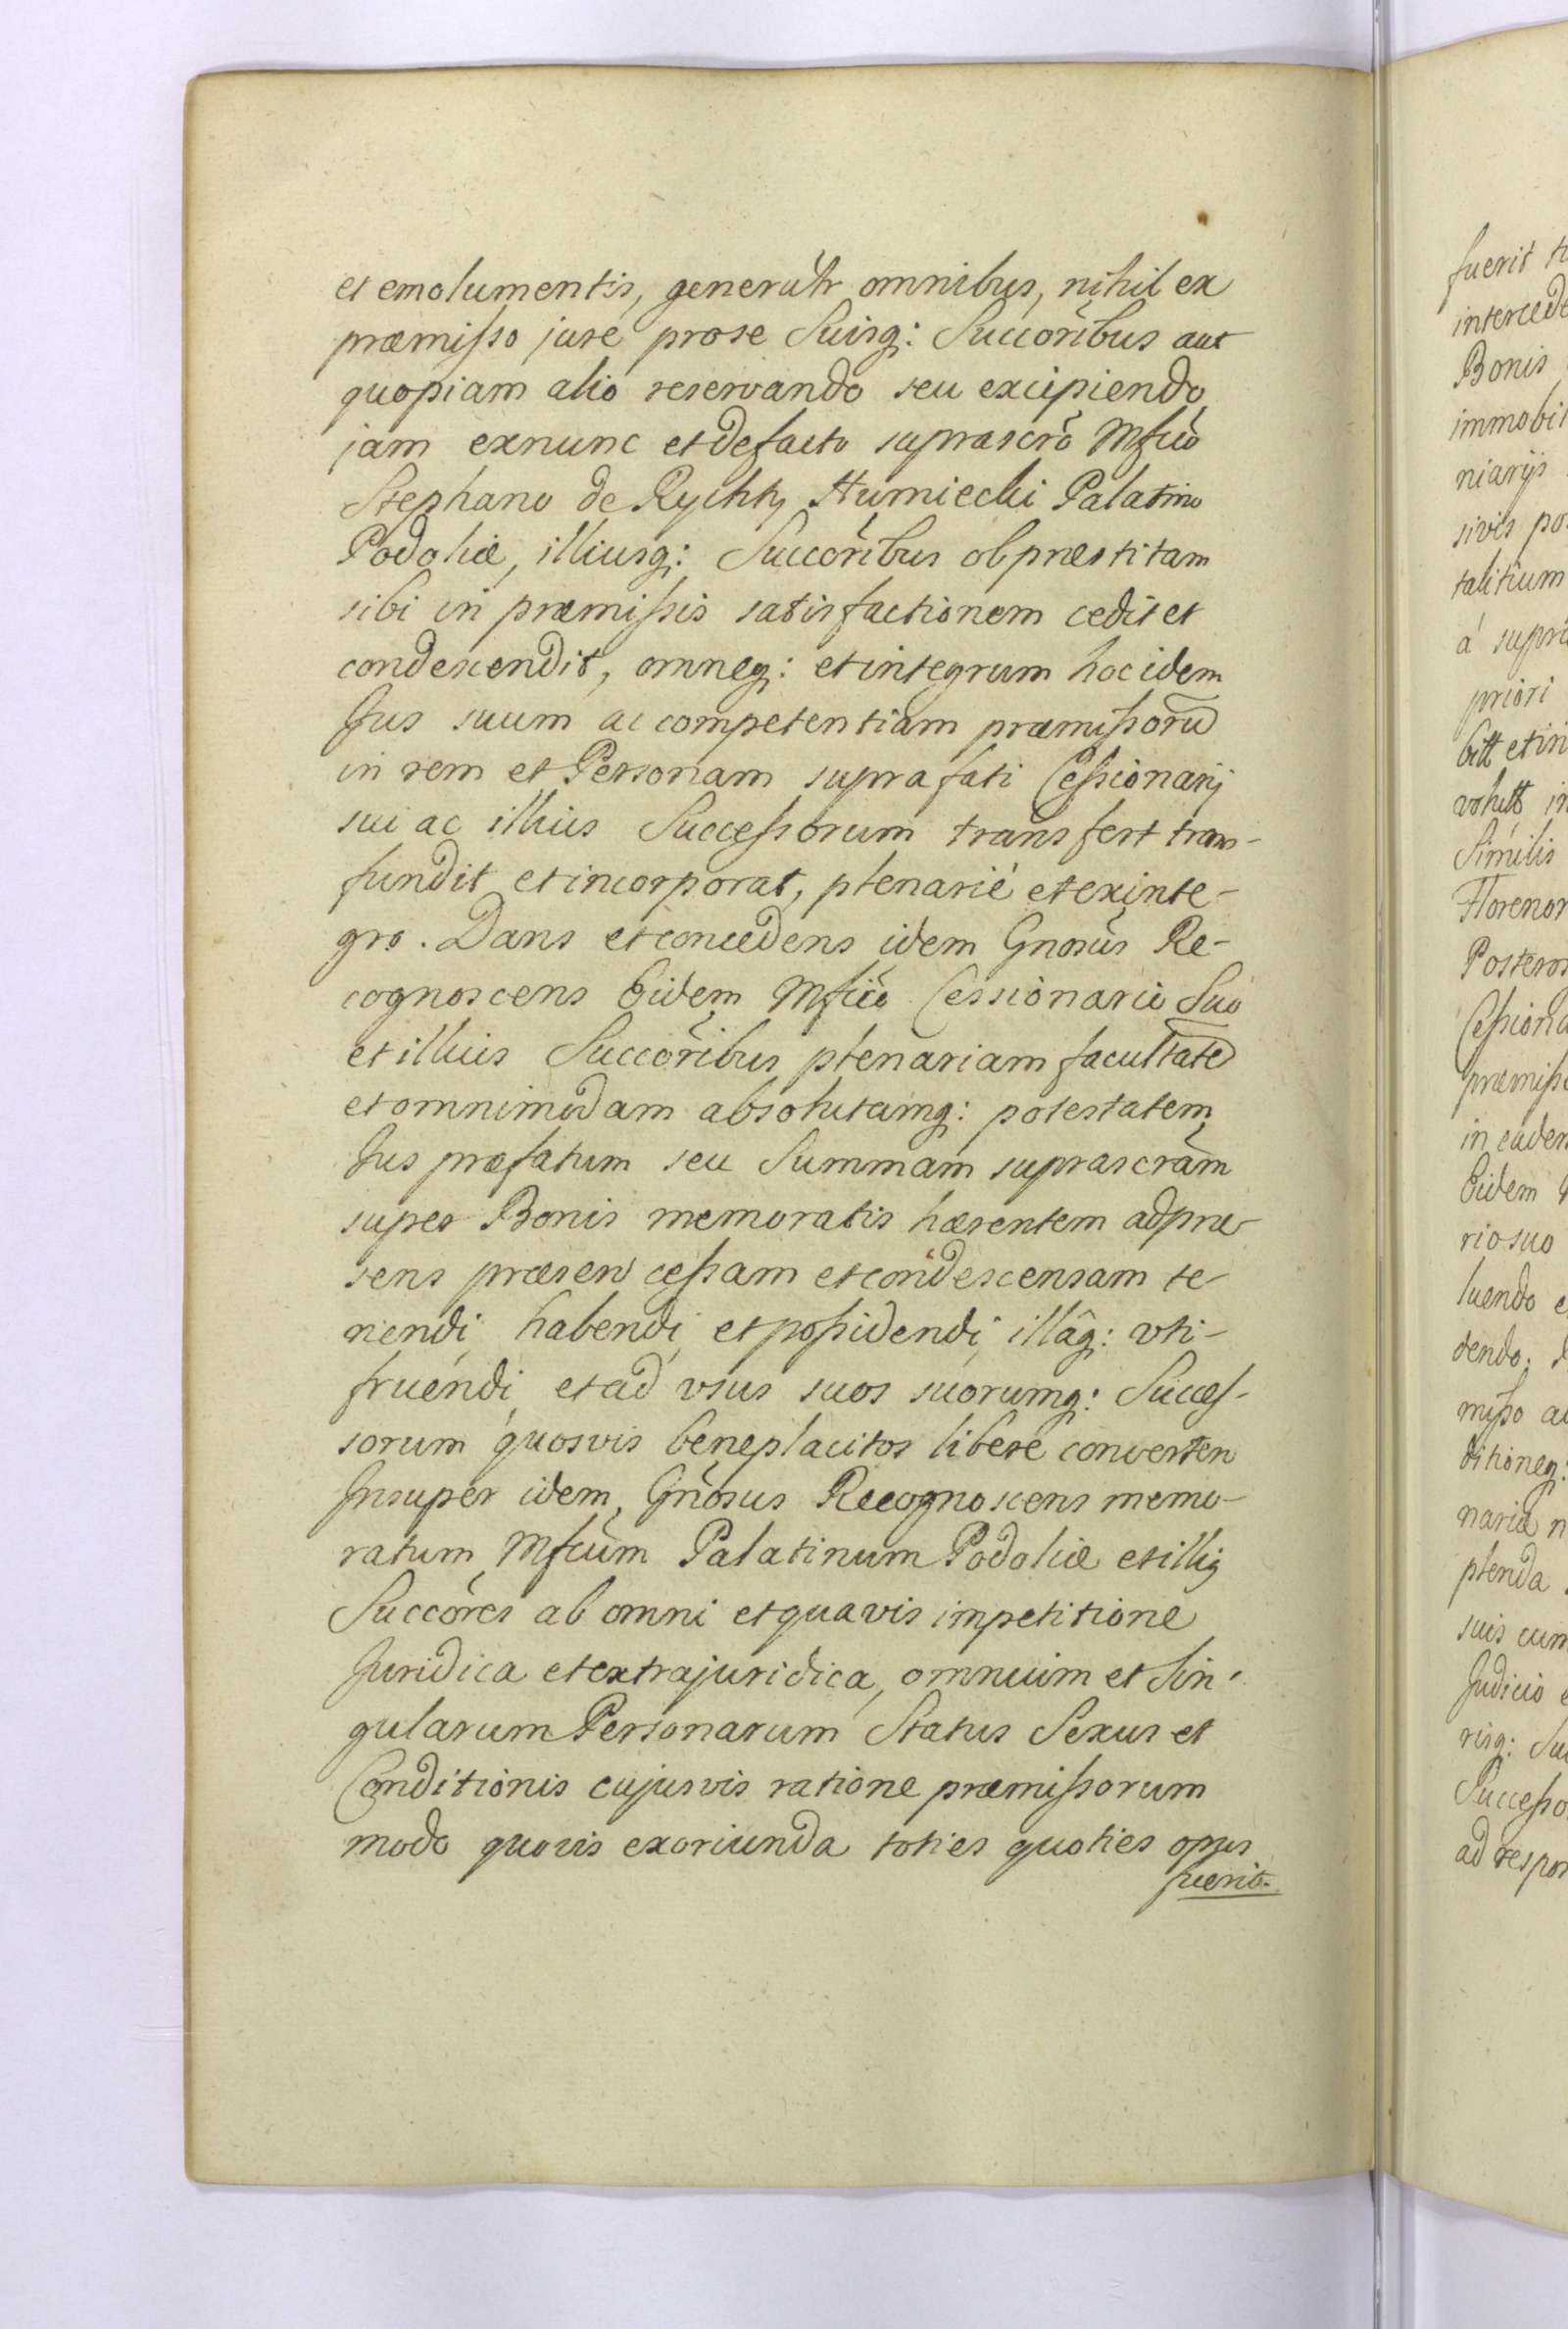 et emolumentis, generalr omnibus, nihil ex
præmisso jure prose Suisq: Succoribus aut
quopiam alio reservando seu excipiendo
jam exnunc et defacto suprascrõ Mfico
Stephano de Rychty Humiecki Palatino
Podoliæ, illiusq: Succoribus ob præstitam
sibi in præmissis satisfactionem cedit et
condescendit, omneq: et integrum hoc idem
Jus suum ac competentiam præmissorũ
in rem et Personam suprafati Cessionarij
sui ac illius Successorum transfert trans-
fundit et incorporat, plenarié et exinte-
gro. Dans et concedens idem Gnosus Re-
cognoscens Eidem Mfico Cessionario Suo
et illius Succoribus plenariam facultatẽ
et omnimodam absolutamq: potestatem
Jus præfatum seu Summam suprascrãm
super Bonis memoratis hærentem adpræ-
sens præsen cessam et condescensam te-
nendi, habendi, et possidendi, illâq: vti-
fruendi, et ad vsus suos suorumq: Succes-
sorum quosvis beneplacitos libere converten
Insuper idem Gnosus Recognoscens memo-
ratum Mficum Palatinum Podoliæ et illig
Succores ab omni et quavis impetitione
Juridica et extrajuridica, omnium et Sin-
gularum Personarum Status Sexus et
Conditionis cujusvis ratione præmissorum
modo quovis exoriunda toties quoties opus
fuerit.
fuerit
intercede
Bonis
immobi
niarijs
sivis po
talitium
á supra
priori
bitt et in
Similis
Florenor
Posteros
Cessiona
præmiss
in eadem
Eidem
rio suo
luendo e
dendo.
misso a
ditioneq:
naria n
plenda
suis cum
Judicio e
risq: Su
Successo
ad respon